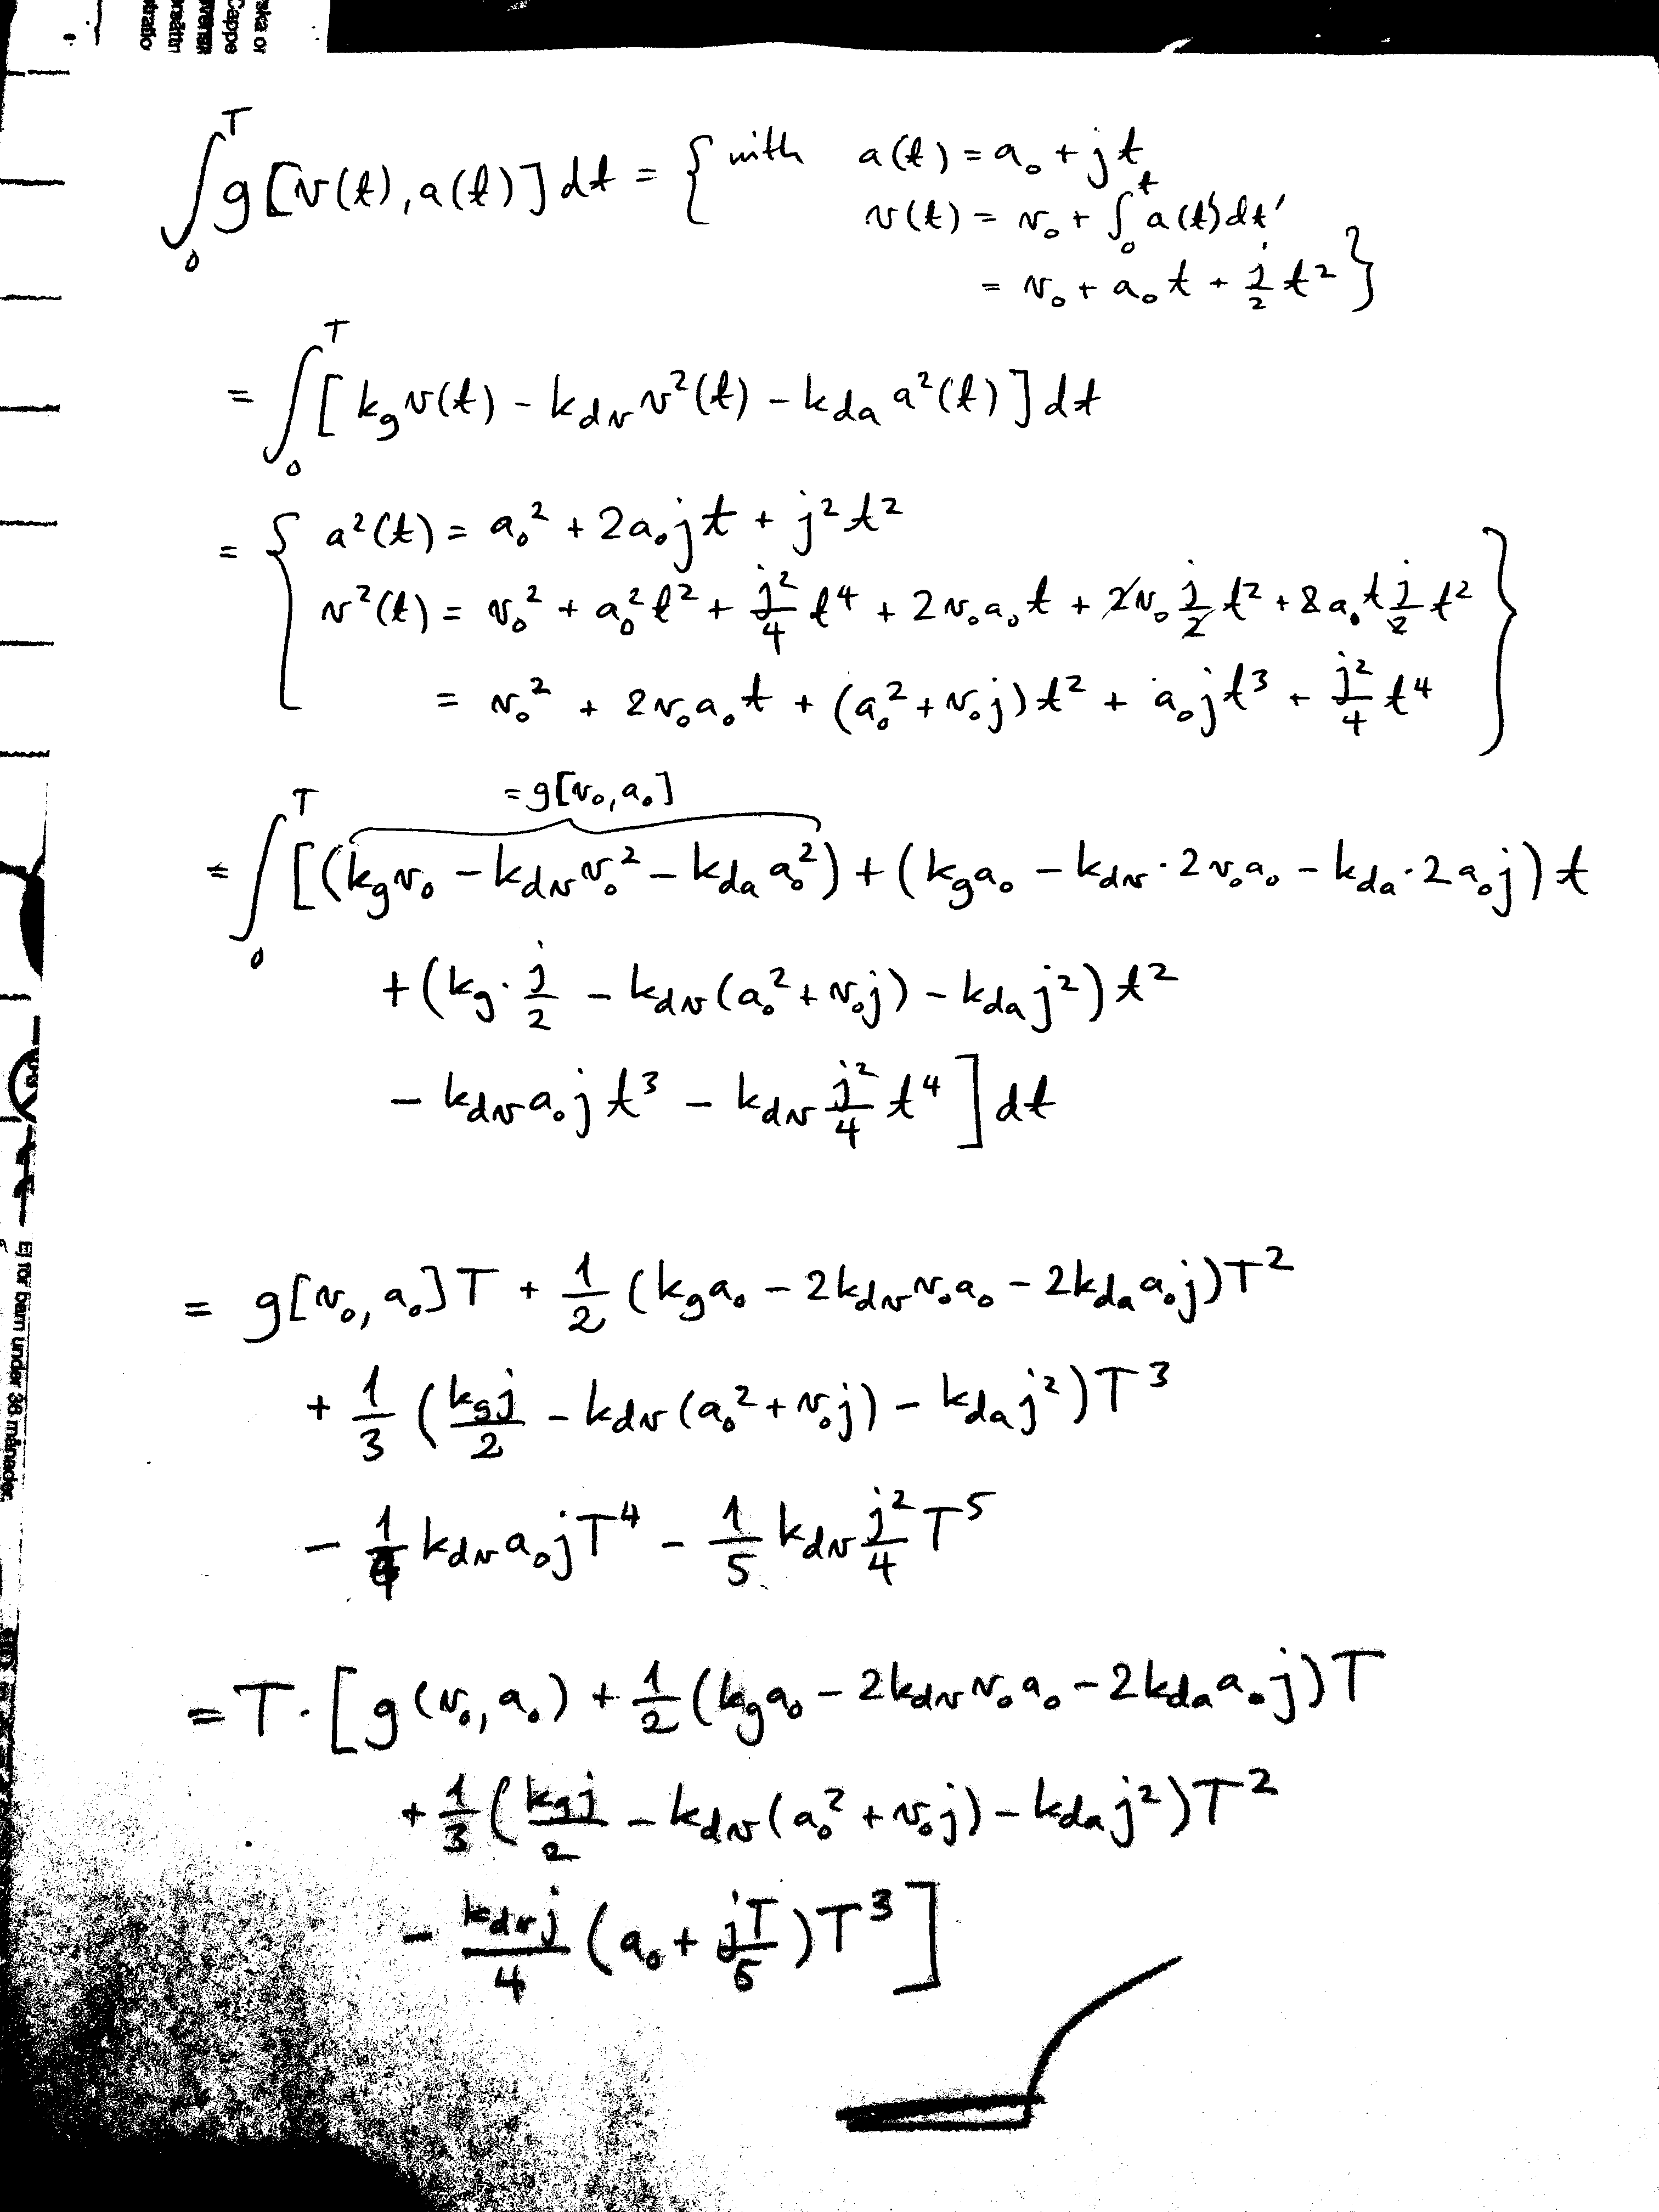 ska or
Cappe
∫₀ᵀ g[v(t), a(t)] dt = { with a(t) = a₀ + jt
v(t) = v₀ + ∫₀ᵗ a(t')dt'
= v₀ + a₀t + j/2 t² }
= ∫₀ᵀ [k_g v(t) - k_dv v²(t) - k_da a²(t)] dt
= { a²(t) = a₀² + 2a₀jt + j²t²
v²(t) = v₀² + a₀²t² + j²/4 t⁴ + 2v₀a₀t + 2v₀ j/2 t² + 2a₀t j/2 t²
= v₀² + 2v₀a₀t + (a₀² + v₀j)t² + a₀jt³ + j²/4 t⁴ }
= g[v₀, a₀]
= ∫₀ᵀ [(k_g v₀ - k_dv v₀² - k_da a₀²) + (k_g a₀ - k_dv · 2v₀a₀ - k_da · 2a₀j) t
+ (k_g · j/2 - k_dv (a₀² + v₀j) - k_da j²) t²
- k_dv a₀ j t³ - k_dv j²/4 t⁴ ] dt
= g[v₀, a₀]T + 1/2 (k_g a₀ - 2k_dv v₀a₀ - 2k_da a₀j)T²
+ 1/3 (k_g j/2 - k_dv (a₀² + v₀j) - k_da j²)T³
- 1/4 k_dv a₀jT⁴ - 1/5 k_dv j²/4 T⁵
= T · [g(v₀, a₀) + 1/2 (k_g a₀ - 2k_dv v₀a₀ - 2k_da a₀j)T
+ 1/3 (k_g j/2 - k_dv (a₀² + v₀j) - k_da j²)T²
- k_dv j/4 (a₀ + jT/5)T³]
Ej för barn under 36 månader.